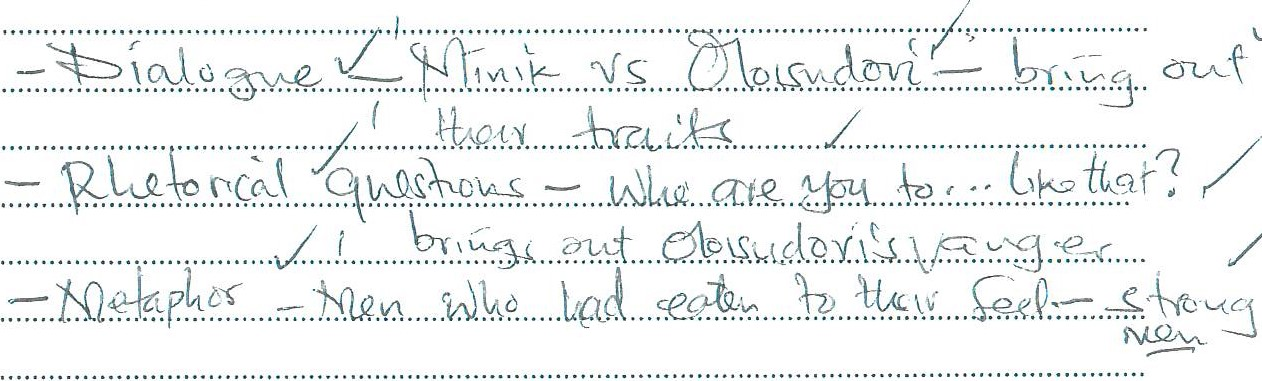 - Dialogue ✓ - Minik vs Oloisudori ✓ - bring out
their traits ✓
- Rhetorical questions - Who are you to... like that? ✓
✓ 1 brings out Oloisudori's anger
- Metaphor - Men who had eaten to their feel - strong
men